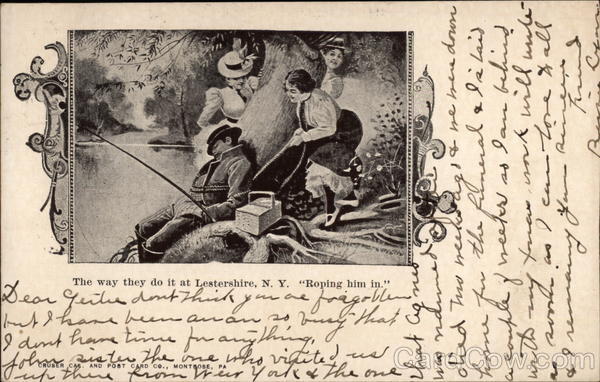 The way they do it at Lestershire, N. Y. "Roping him in."
Dear Gertie dont think you are forgotten
but I have been an so busy that
I dont have time for anything,
John's sister the one who visited us
CRUBER CAS. AND POST CARD CO., MONTROSE, PA
up there from New York & the one
that
was
died two weeks ago & we were down
home for the funeral & I staid
a couple of weeks so I am behind
with my work will write
as soon as I can love to all
& remain your sincere
friend
CardCow.com